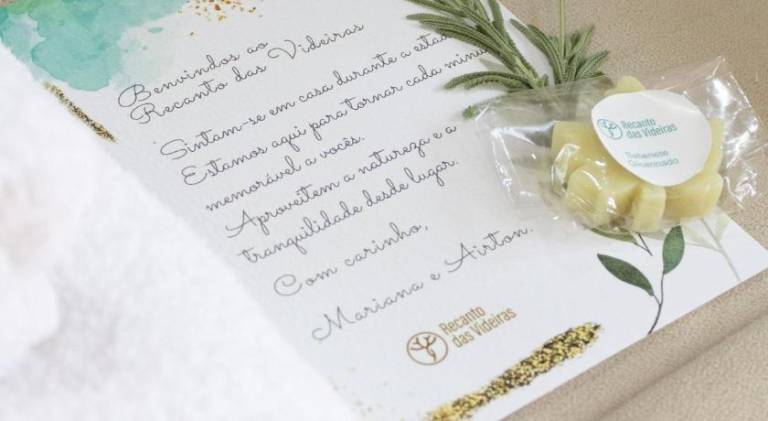 Benvindos ao
Recanto das Videiras
Sintam-se em casa durante a estad
Estamos aqui para tornar cada minu
memorável a vocês.
Aproveitem a natureza e a
tranquilidade desde lugar.
Com carinho,
Mariana e Airton.
Recanto
das Videiras
Recanto
das Videiras
Sabonete
Glicerinado